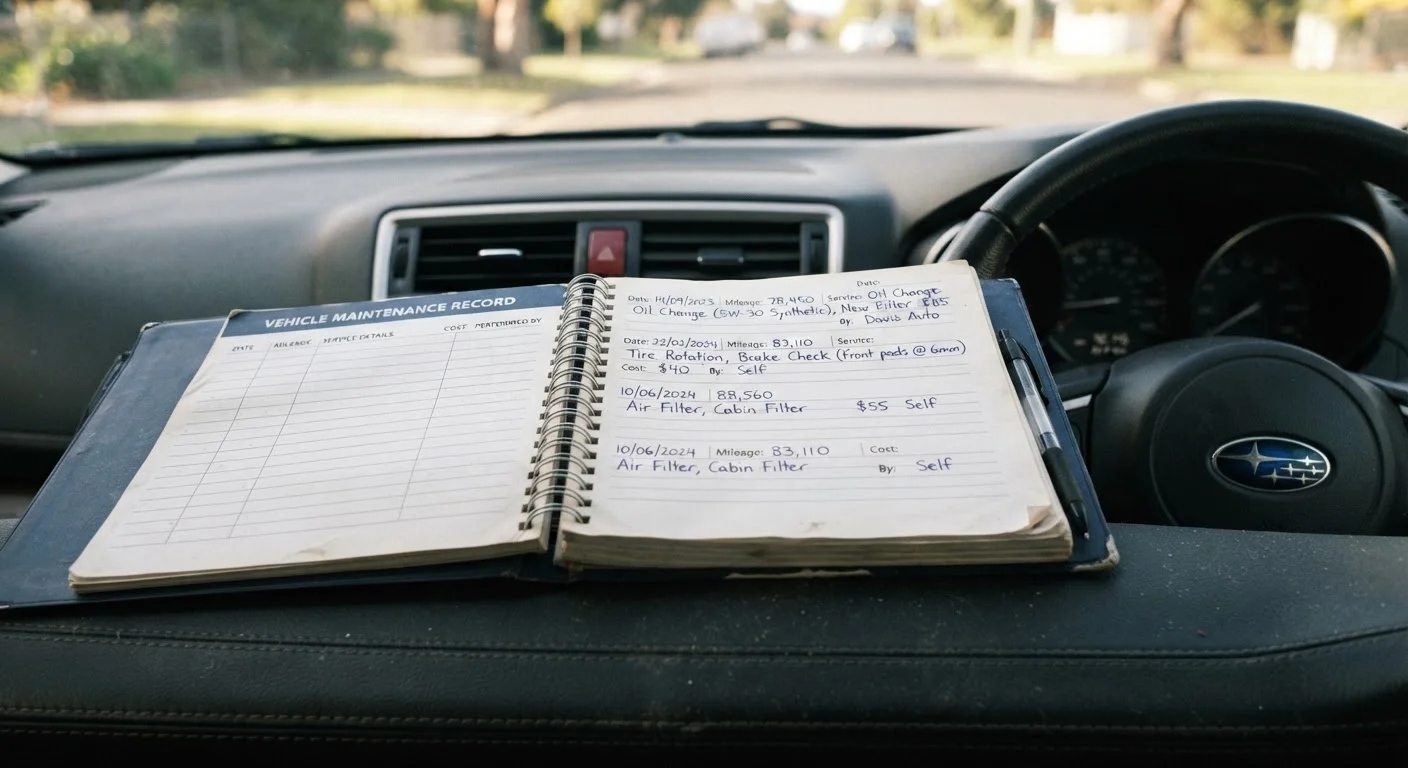 VEHICLE MAINTENANCE RECORD
DATE MILEAGE SERVICE DETAILS COST PERFORMED BY
Date:
Date: 14/09/2023 Mileage: 78,450 Service: Oil Change
Oil Change (5W-30 Synthetic), New Filter $85
By: Davis Auto
Date: 22/02/2024 Mileage: 83,110 Service:
Tire Rotation, Brake Check (front pads @ 6mm)
Cost: $40 By: Self
10/06/2024 88,560
Air Filter, Cabin Filter $55 Self
10/06/2024 Mileage: 83,110 Cost:
Air Filter, Cabin Filter By: Self